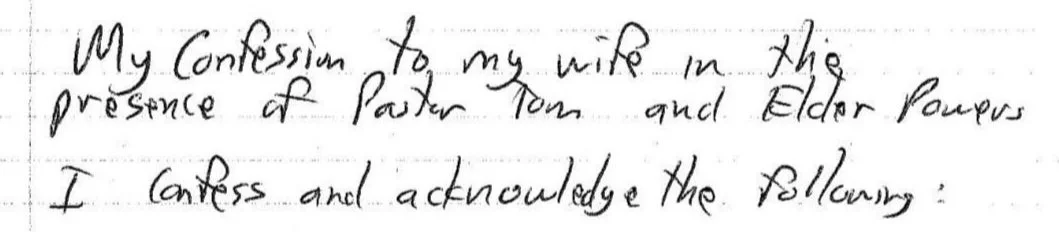 My Confession to my wife in the
presence of Pastor Tom and Elder Powers
I Confess and acknowledge the following: